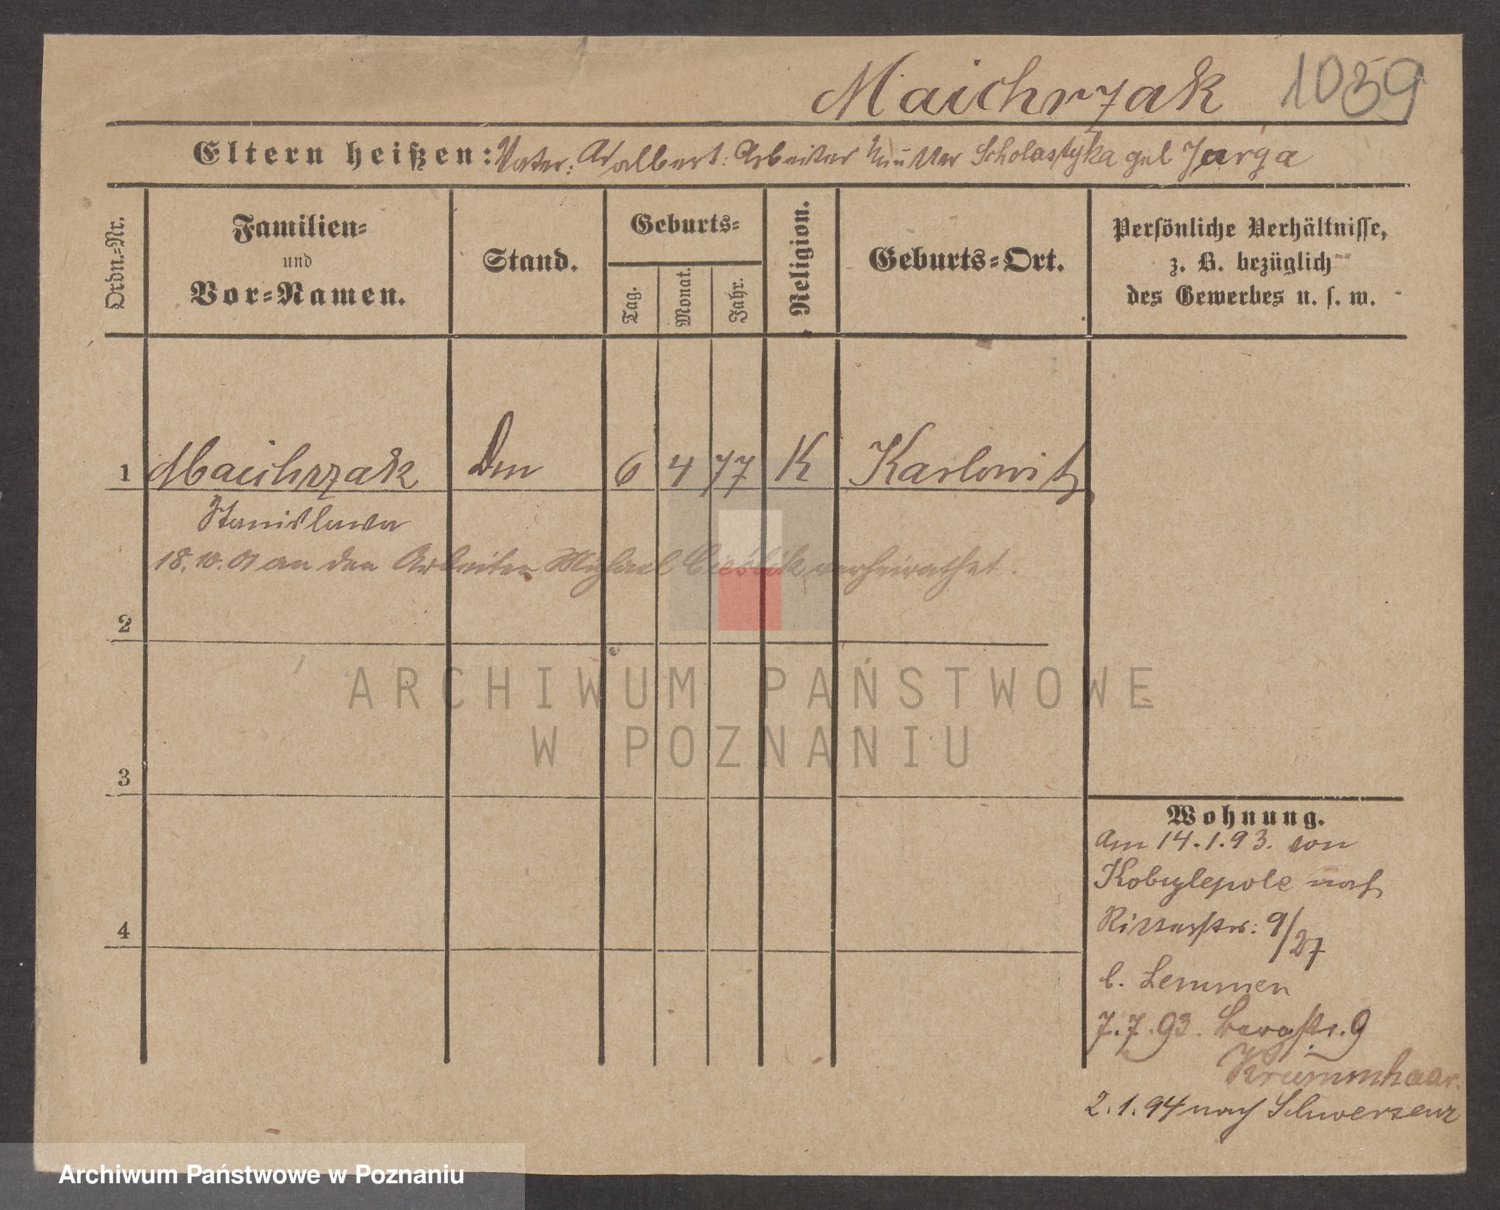 Maichrzak 1039
Eltern heißen: Vater: Adalbert: Arbeiter Mutter Scholastyka geb Jarga
Ordn.-Nr.
Familien-
und
Vor-Namen.
Stand.
Geburts-
Tag.
Monat.
Jahr.
Religion.
Geburts-Ort.
Persönliche Verhältnisse,
z. B. bezüglich
des Gewerbes u. s. w.
1 Maichrzak 6 4 77 K Karlowitz
Stanislawa
18.10.01 an den Arbeiter Michael verheirathet.
2
ARCHIWUM PAŃSTWOWE
W POZNANIU
3
4
Wohnung.
Am 14.1.93. von
Kobylepole nach
Ritterstr: 9/27
b. Lemmen
7.7.93. Bergstr. 9
Krummhaar.
2.1.94 nach Schwersenz
Archiwum Państwowe w Poznaniu